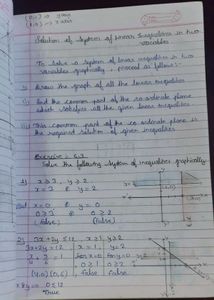 Solution of System of Linear Inequalities in two
variables
To solve a system of linear inequalities in two
variables graphically, proceed as follows:-
i) Draw the graph of all the linear inequalities
ii) find the common part of the co ordinate plane
which satisfies all the given linear inequalities
iii) This common part of the co ordinate plane is
the required solution of given inequalities
Exercise - 6.3
Solve the following system of inequalities graphically
1) x ≥ 3, y ≥ 2
x = 3 & y = 2
Put x = 0 & y = 0
0 ≥ 3 & 0 ≥ 2
(false) (false)
2) 3x + 2y ≤ 12 x ≥ 1, y ≥ 2
3x + 2y = 12 y = 2
For x=0 For y=0
0 ≥ 1 0 ≥ 2
(4,0) (0,6) false False
0 ≤ 12
True